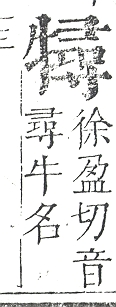 徐盈切音
尋牛名